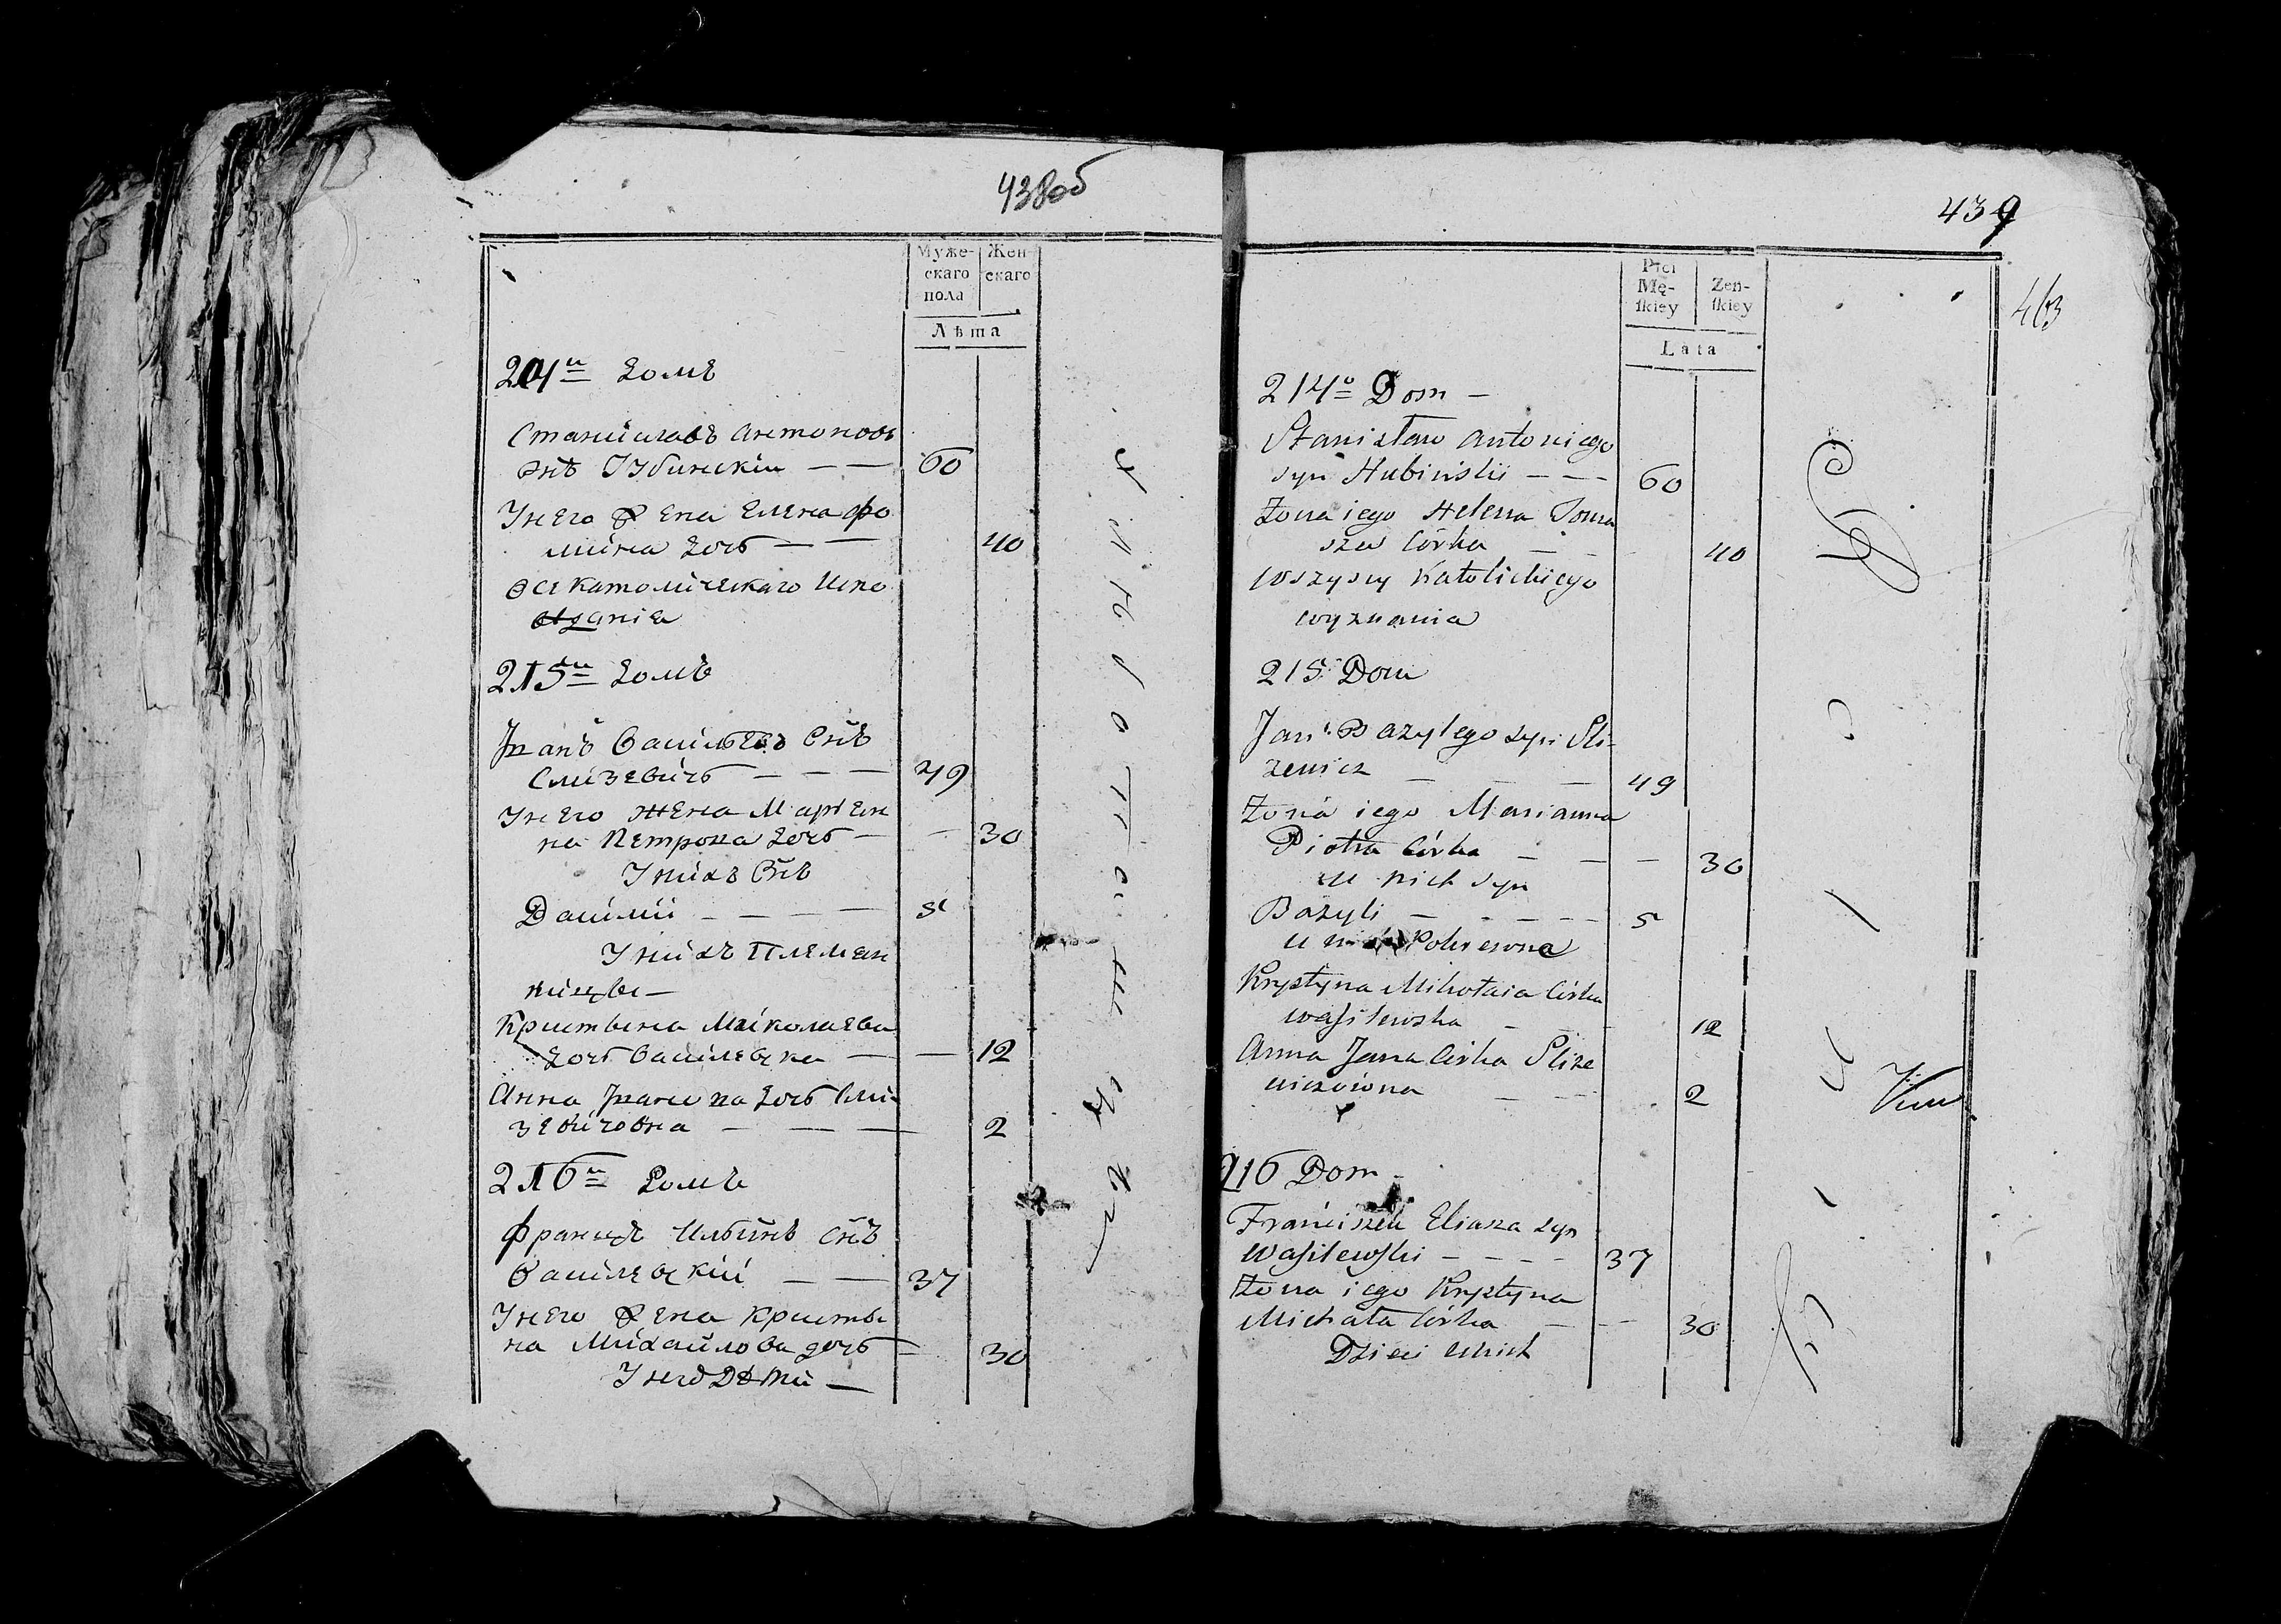 438об
Муже-
скаго
пола
Жен-
скаго
Лѣта
214й домъ
Станиславъ Антоновъ
снъ Губинскій — — 60
У него жена Елена Фо
мина дочь — — 40
все католическаго испо
веданія
215й домъ
Иванъ Васильевъ снъ
Слизевичь — — — 49
У него жена Маріян
на Петрова дочь — — 30
У нихъ снъ
Василій — — — — 5
У нихъ племян
ницы —
Кристына Миколаева
дочь Василевска — — 12
Анна Иванова дочь Сли
зевичовна — — — 2
216й домъ
Францъ Ильинъ снъ
Василевскій — — 37
У него жена Кристы
на Михайлова дочь — 30
У него дѣти —
439
463
Płci
Mę-
skiey
Żen-
skiey
Lata
214o Dom —
Stanisław Antoniego
syn Hubiński — — — 60
Żona iego Helena Toma
sza Córka — — 40
wszyscy Katolickiego
wyznania
215 Dom
Jan Bazylego syn Sli-
zewicz — — — 49
Żona iego Marianna
Piotra Córka — — — 30
U nich syn
Bazyli — — — — 5
U nich Pokrewne
Krystyna Mikołaia Córka
Wasilewska — — 12
Anna Jana Córka Slize
wiczowna — — 2
216 Dom
Franciszek Eliasza syn
Wasilewski — — — — 37
Żona iego Krystyna
Michała Córka — — 30
Dzieci u nich